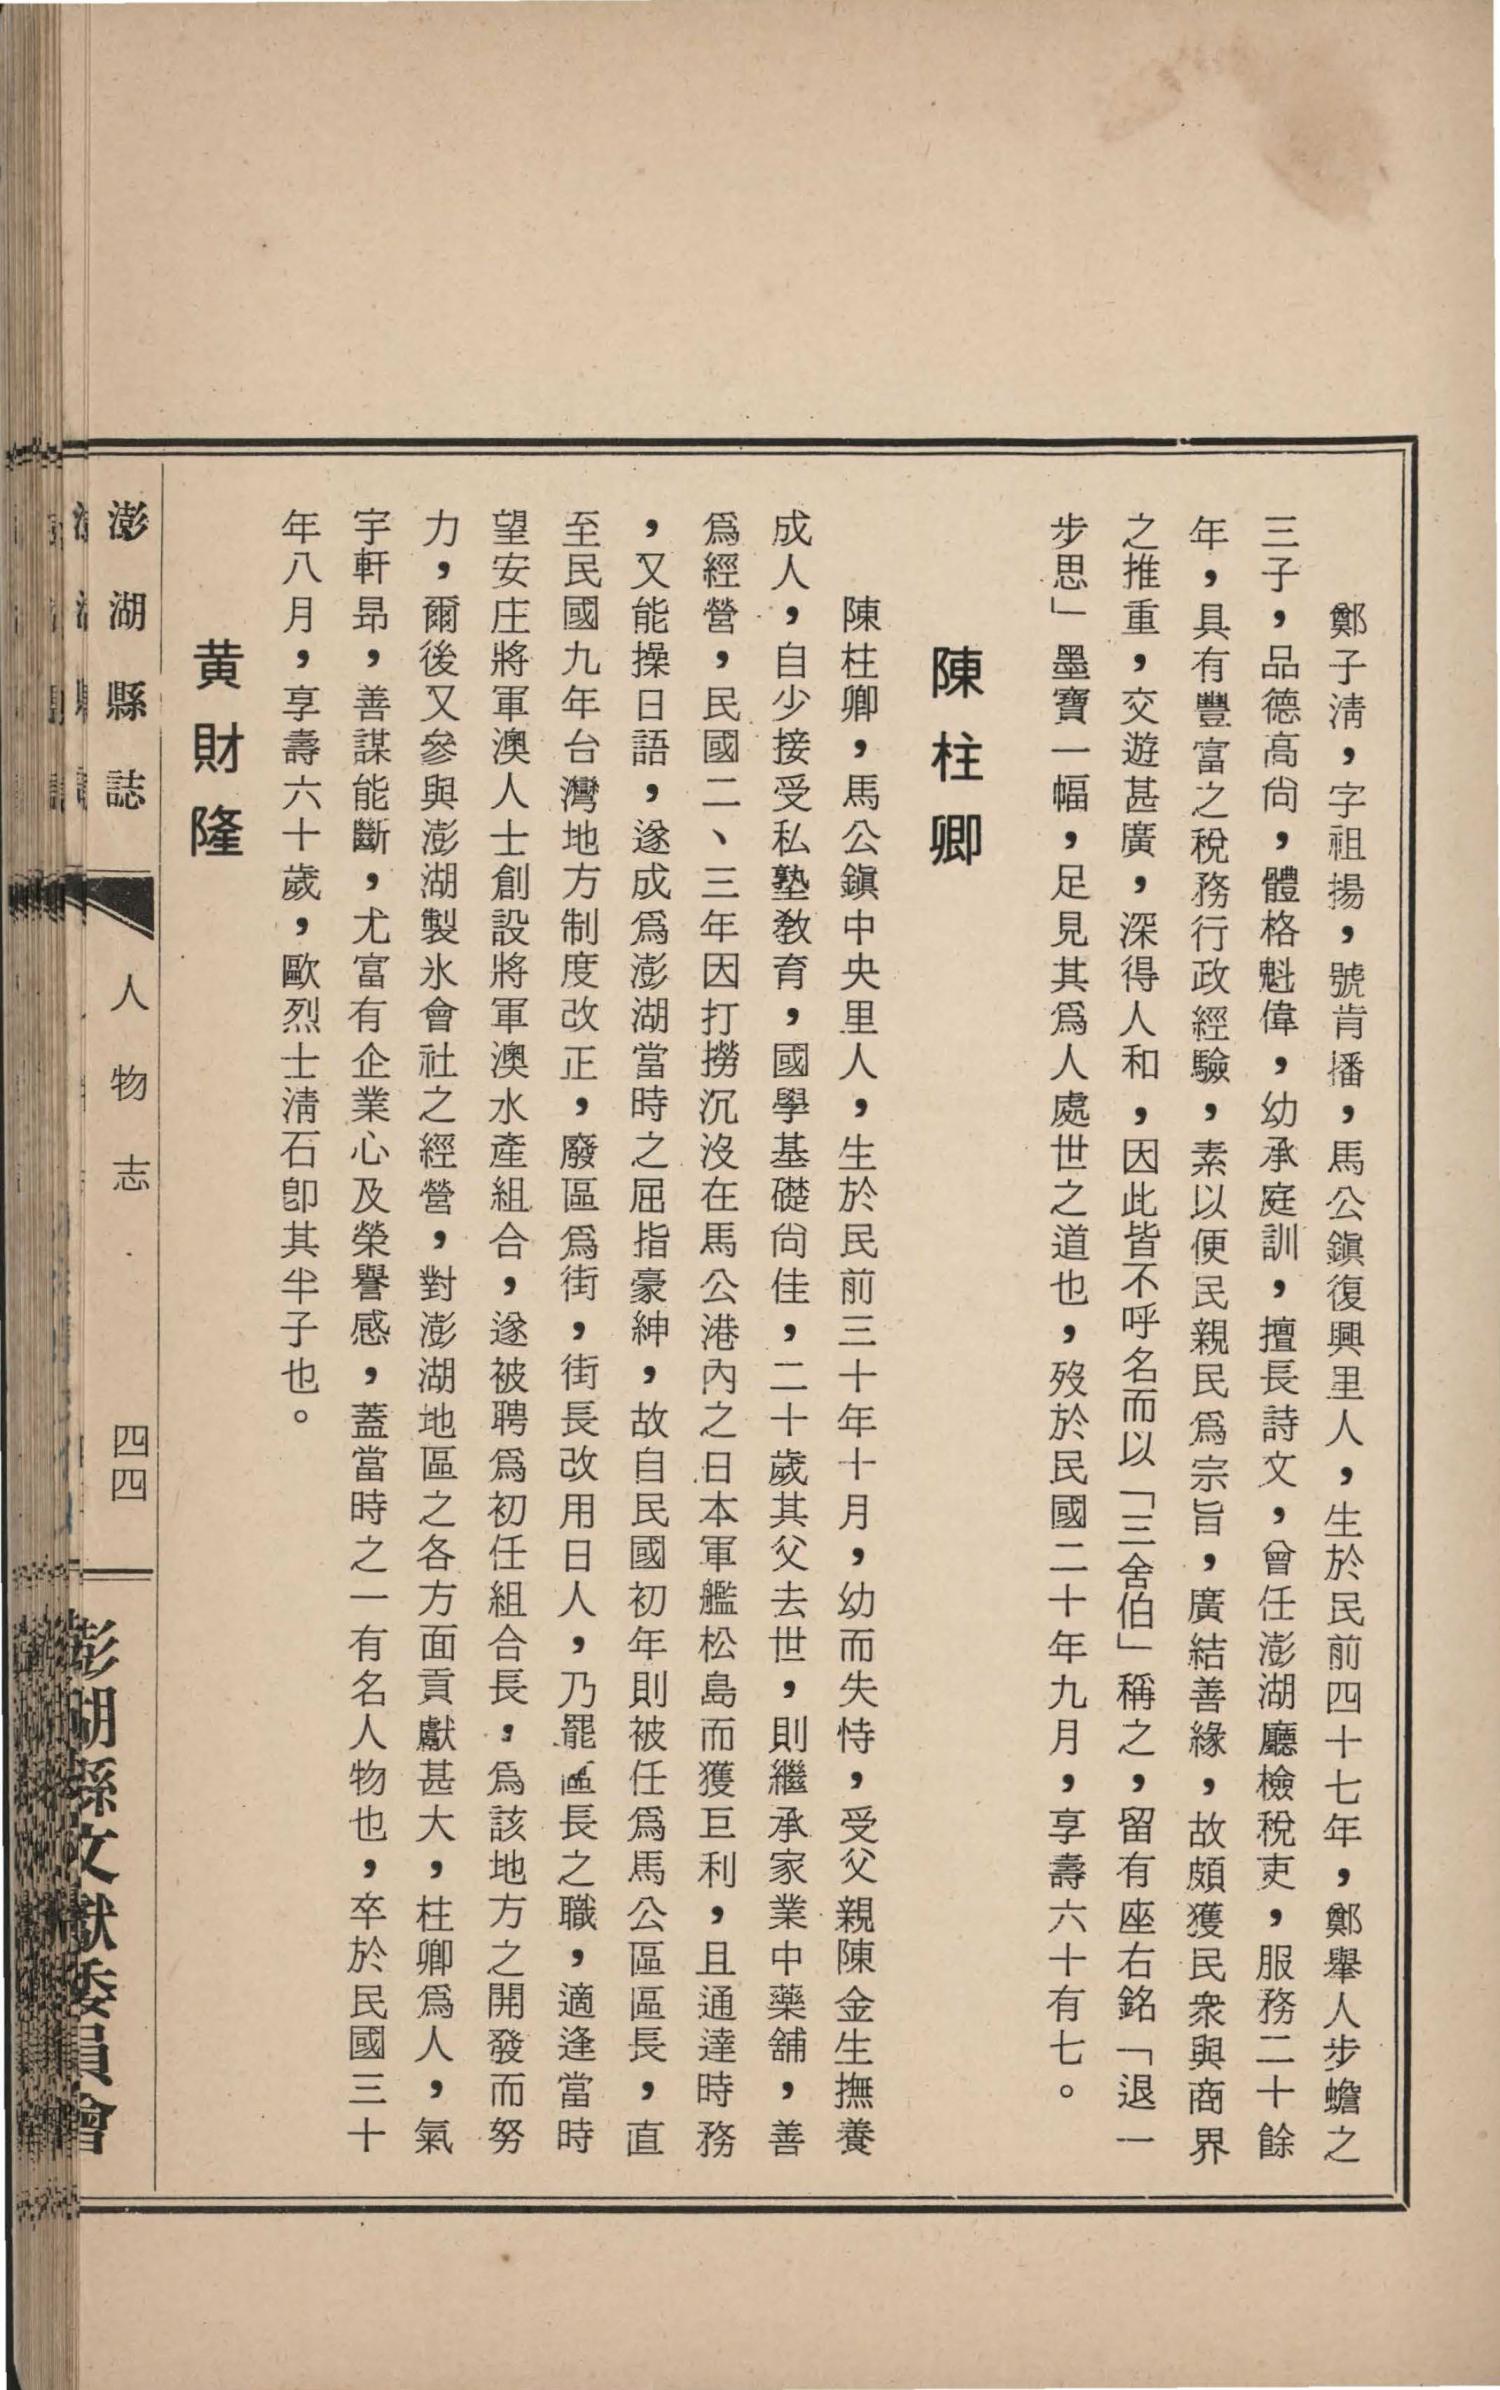 鄭子淸，字祖揚，號肯播，馬公鎭復興里人，生於民前四十七年，鄭舉人步蟾之
三子，品德高尙，體格魁偉，幼承庭訓，擅長詩文，曾任澎湖廳檢稅吏，服務二十餘
年，具有豐富之稅務行政經驗，素以便民親民爲宗旨，廣結善緣，故頗獲民衆與商界
之推重，交遊甚廣，深得人和，因此皆不呼名而以「三舍伯」稱之，留有座右銘「退一
步思」墨寶一幅，足見其爲人處世之道也，歿於民國二十年九月，享壽六十有七。
陳柱卿
陳柱卿，馬公鎭中央里人，生於民前三十年十月，幼而失恃，受父親陳金生撫養
成人，自少接受私塾敎育，國學基礎尙佳，二十歲其父去世，則繼承家業中藥舖，善
爲經營，民國二、三年因打撈沉沒在馬公港內之日本軍艦松島而獲巨利，且通達時務
，又能操日語，遂成爲澎湖當時之屈指豪紳，故自民國初年則被任爲馬公區區長，直
至民國九年台灣地方制度改正，廢區爲街，街長改用日人，乃罷區長之職，適逢當時
望安庄將軍澳人士創設將軍澳水產組合，遂被聘爲初任組合長，爲該地方之開發而努
力，爾後又參與澎湖製氷會社之經營，對澎湖地區之各方面貢獻甚大，柱卿爲人，氣
宇軒昻，善謀能斷，尤富有企業心及榮譽感，蓋當時之一有名人物也，卒於民國三十
年八月，享壽六十歲，歐烈士淸石卽其半子也。
黃財隆
澎湖縣誌
人物志
四四
澎湖縣文獻委員會